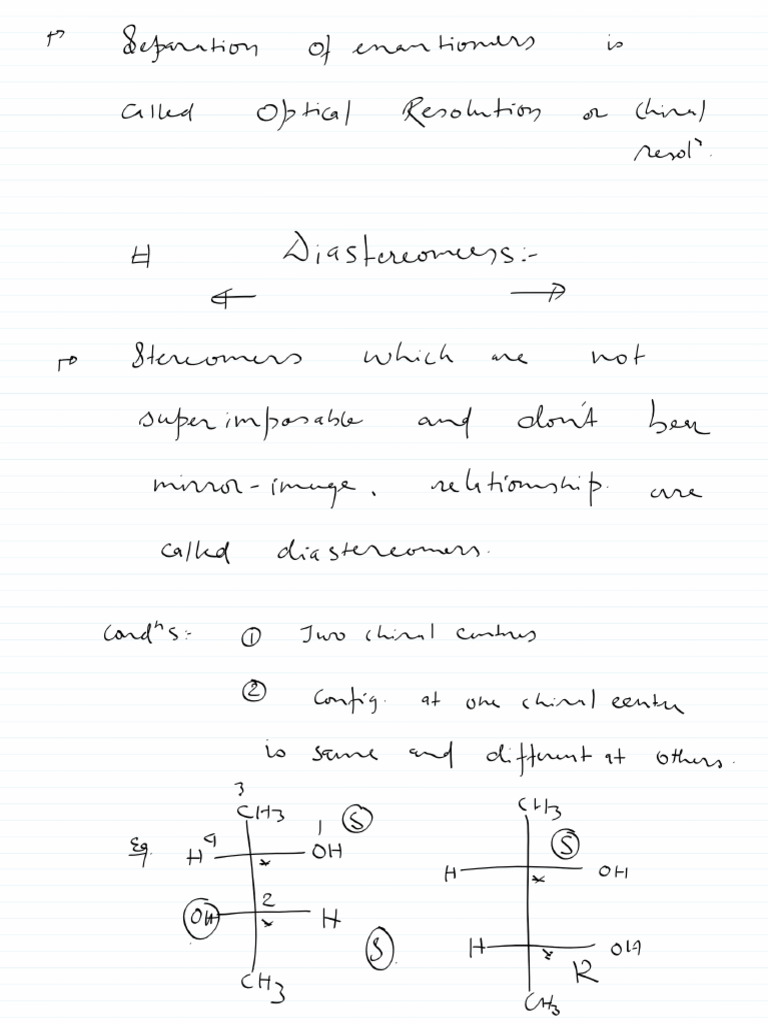 Separation of enantiomers is
called Optical Resolution or chiral
resolⁿ.
# Diastereomers:-
Stereomers which are not
superimposable and don't bear
mirror-image. relationship. are
called diastereomers.
Condⁿs:- ① Two chiral centres
② Config. at one chiral centre
is same and different at others.
3
CH3 1 Ⓢ CH3
Eg. H 4 OH Ⓢ
* H OH
*
OH 2 H
* H OH
Ⓢ * R
CH3 CH3